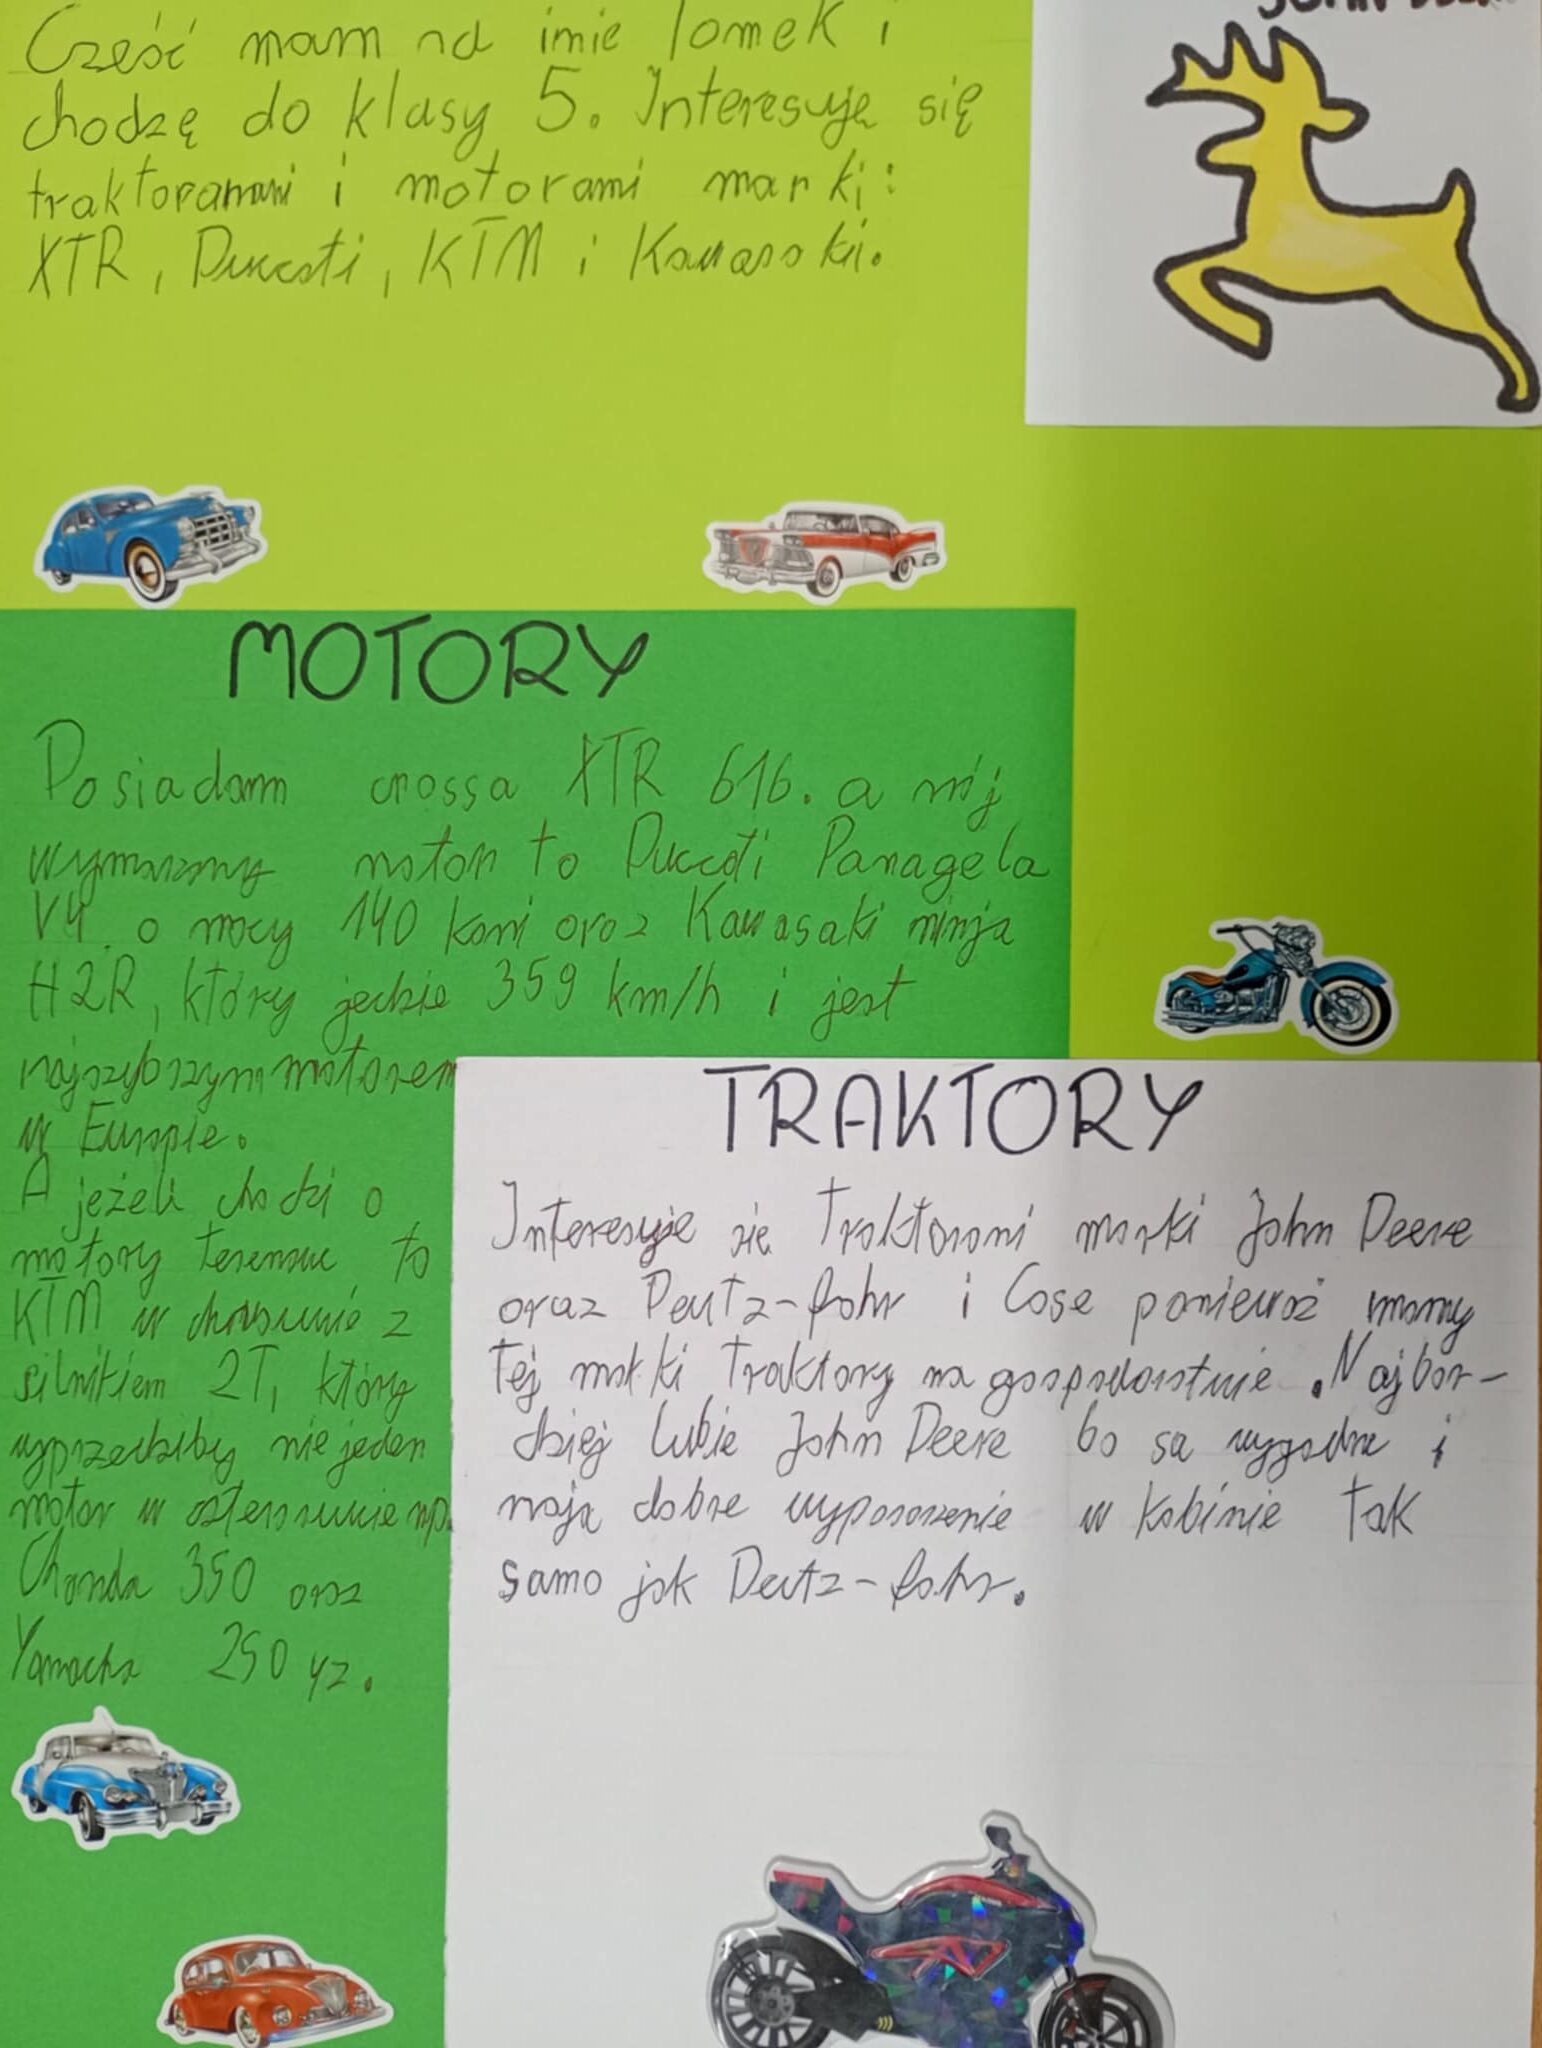 Cześć mam na imie Tomek i
chodzę do klasy 5. Interesuję się
traktorami i motorami marki:
XTR, Ducati, KTM i Kawasaki.
MOTORY
Posiadam crossa XTR 616. a mój
wymarzony motor to Ducati Panagela
V4. o mocy 140 koni oraz Kawasaki ninja
H2R, który jedzie 359 km/h i jest
najszybszym motorem
w Europie.
A jeżeli chodzi o
motory terenowe, to
KTM w
silnikiem 2T, który
wyprzedziłby nie jeden
motor w np.
Chonda 350 oraz
Yamacha 250 yz.
TRAKTORY
Interesuje sie Traktorami marki John Deere
oraz Deutz-fahr i Case ponieważ mamy
tej marki Traktory na gospodarstwie. Najbar-
dziej lubie John Deere bo sa wygodne i
maja dobre wyposarzenie w kabinie tak
samo jak Deutz-fahr.